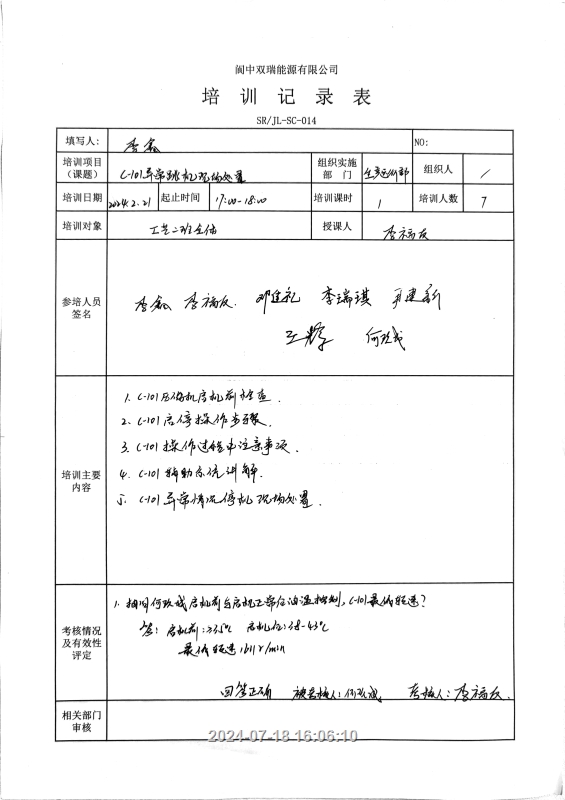 阆中双瑞能源有限公司
培训记录表
SR/JL-SC-014
填写人: 李鑫 NO:
培训项目(课题) C-101异常跳机现场处置 组织实施部门 生产运行部 组织人 /
培训日期 2024.2.21 起止时间 17:00-18:00 培训课时 1 培训人数 7
培训对象 工艺二班全体 授课人 李福友
参培人员签名 李鑫 李福友 邓廷礼 李瑞琪
王辉
培训主要内容
1. C-101压缩机启机前检查.
2. C-101启停操作步骤.
3. C-101操作过程中注意事项.
4. C-101辅助系统讲解.
5. C-101异常情况停机现场处置.
考核情况及有效性评定
1. 抽问何 启机前与启机正常后油温控制, C-101最低转速?
答: 启机前: 启机后:38-43℃
最低转速: r/min
回答正确 被考核人: 何 考核人: 李福友.
相关部门审核
2024-07-18 16:06:10